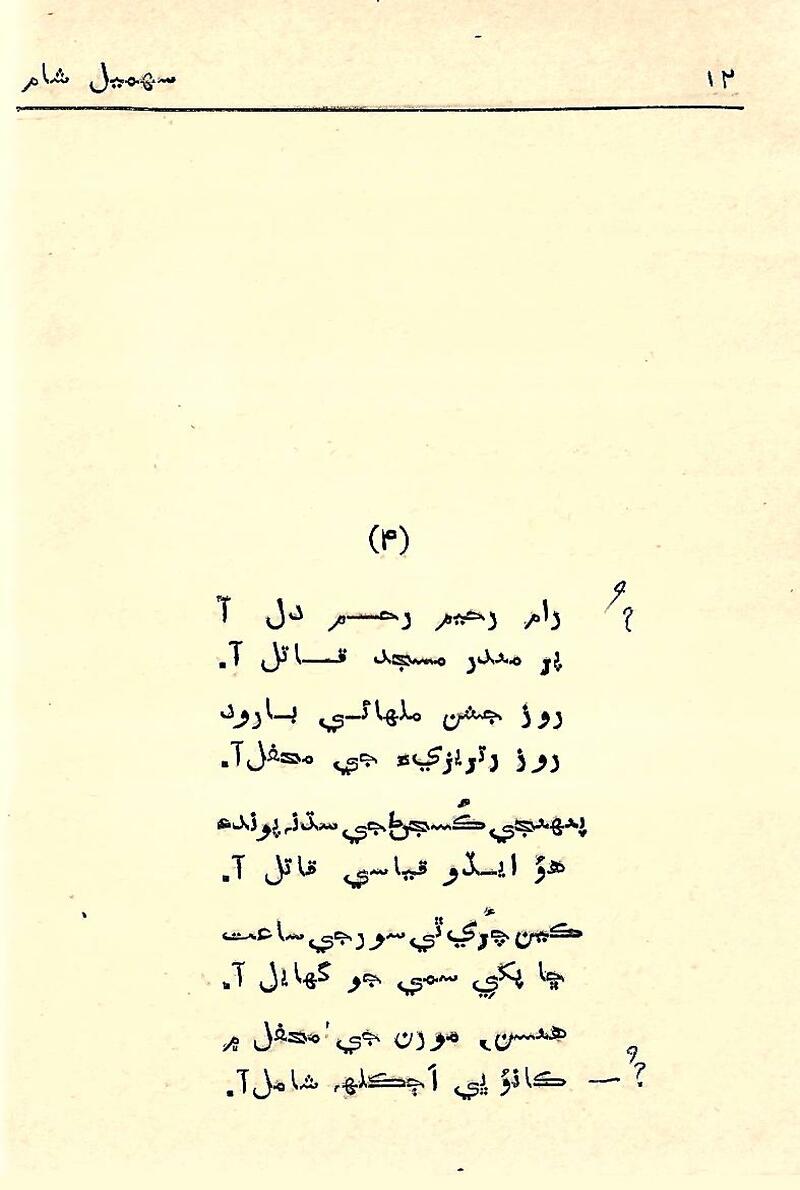 ١٢ سهميل شام
(۴)
رام رحيم رحم دل آ
پر مندر مسجد قاتل آ.
روز جشن ملهائي بارود
روز رتريزيءَ جي محفل آ.
پنهنجي ڪُسجڻ جي سڌ نہ پوندءِ
هوُ ايڏو قياسي قاتل آ.
ڪيئن چُري ٿي سور جي ساعت
ڇا پکي سمي جو گهايل آ.
هنسن، مورن جي محفل ۾
ڪانوُ ڀي اَڄڪلهہ شامل آ.